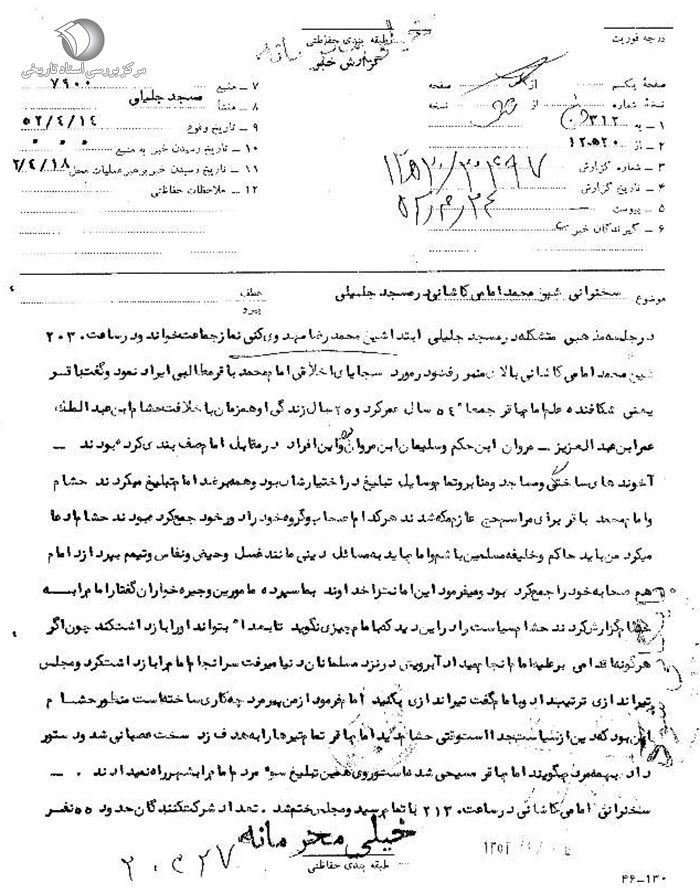 مرکز بررسی اسناد تاریخی
درجه فوریت
طبقه بندی حفاظتی
گزارش خبر
صفحهٔ یکم از صفحه
نسخهٔ شماره از نسخه
۱ – به ۳۱۲
۲ – از ۲۰ ه ۱۲
۳ – شماره گزارش
۴ – تاریخ گزارش
۵ – پیوست
۶ – گیرندگان خبر
۷ – منبع ۷۹۰۰
۸ – منشأ مسجد جلیلی
۹ – تاریخ وقوع ۵۲/۴/۱۴
۱۰ – تاریخ رسیدن خبر به منبع
۱۱ – تاریخ رسیدن خبر برهبر عملیات محل ۲/۴/۱۸
۱۲ – ملاحظات حفاظتی
موضوع سخنرانی شیخ محمد امامی کاشانی در مسجد جلیلی
عطف
پیرو
در جلسه مذهبی متشکله در مسجد جلیلی ابتدا شیخ محمد رضا مهدوی کنی نماز جماعت خواند و در ساعت ۲۰۳۰
شیخ محمد امامی کاشانی بالای منبر رفت و در مورد سجایای اخلاقی امام محمد باقر مطالبی ایراد نمود و گفت باقر
یعنی شکافنده علم امام باقر جمعا ۵۴ سال عمر کرد و ۲۵ سال زندگی او همزمان با خلافت هشام ابن عبد الملک
عمر ابن عبد العزیز – مروان ابن حکم و سلیمان ابن مروان و این افراد در مقابل امام صف بندی کرده بودند –
آخوند های ساختگی و مساجد و منابر و تمام وسایل تبلیغ در اختیارشان بود و همه بر ضد امام تبلیغ میکردند هشام
و امام محمد باقر برای مراسم حج عازم مکه شدند هر کدام اصحاب و گروه خود را دور خود جمع کرده بودند هشام ادعا
میکرد من باید حاکم و خلیفه مسلمین باشم و امام باید به مسائل دینی مانند غسل و حیض و نفاس و تیمم بپردازد امام
هم صحابه خود را جمع کرده بود و میفرمود این امانت را خداوند بما سپرده مامورین و جیره خواران گفتار امام را به
هشام گزارش کردند هشام سیاست را در این دید که بامام چیزی نگوید تا بعدا بتواند او را بازداشت کند چون اگر
هر گونه اقدامی بر علیه امام انجام میداد آبرویش در نزد مسلمانان دنیا میرفت سرانجام امام را بازداشت کرد و مجلس
تیراندازی ترتیب داد و بامام گفت تیراندازی بکنید امام فرمود از من پیر مرد چه کاری ساخته است منظور هشام
این بود که دین از سیاست جدا است وقتی هشام دید امام باقر تمام تیرها را به هدف زد سخت عصبانی شد و دستور
داد بهمه مردم بگویند امام باقر مسیحی شده است و روی همین تبلیغ سوء مردم امام را بشهر راه نمیدادند . –
سخنرانی امامی کاشانی در ساعت ۲۱۳۰ باتمام رسید و مجلس ختم شد . تعداد شرکت کنندگان حدود ۵۵۰ نفر
خیلی محرمانه
طبقه بندی حفاظتی
۴۶–۱۳۰